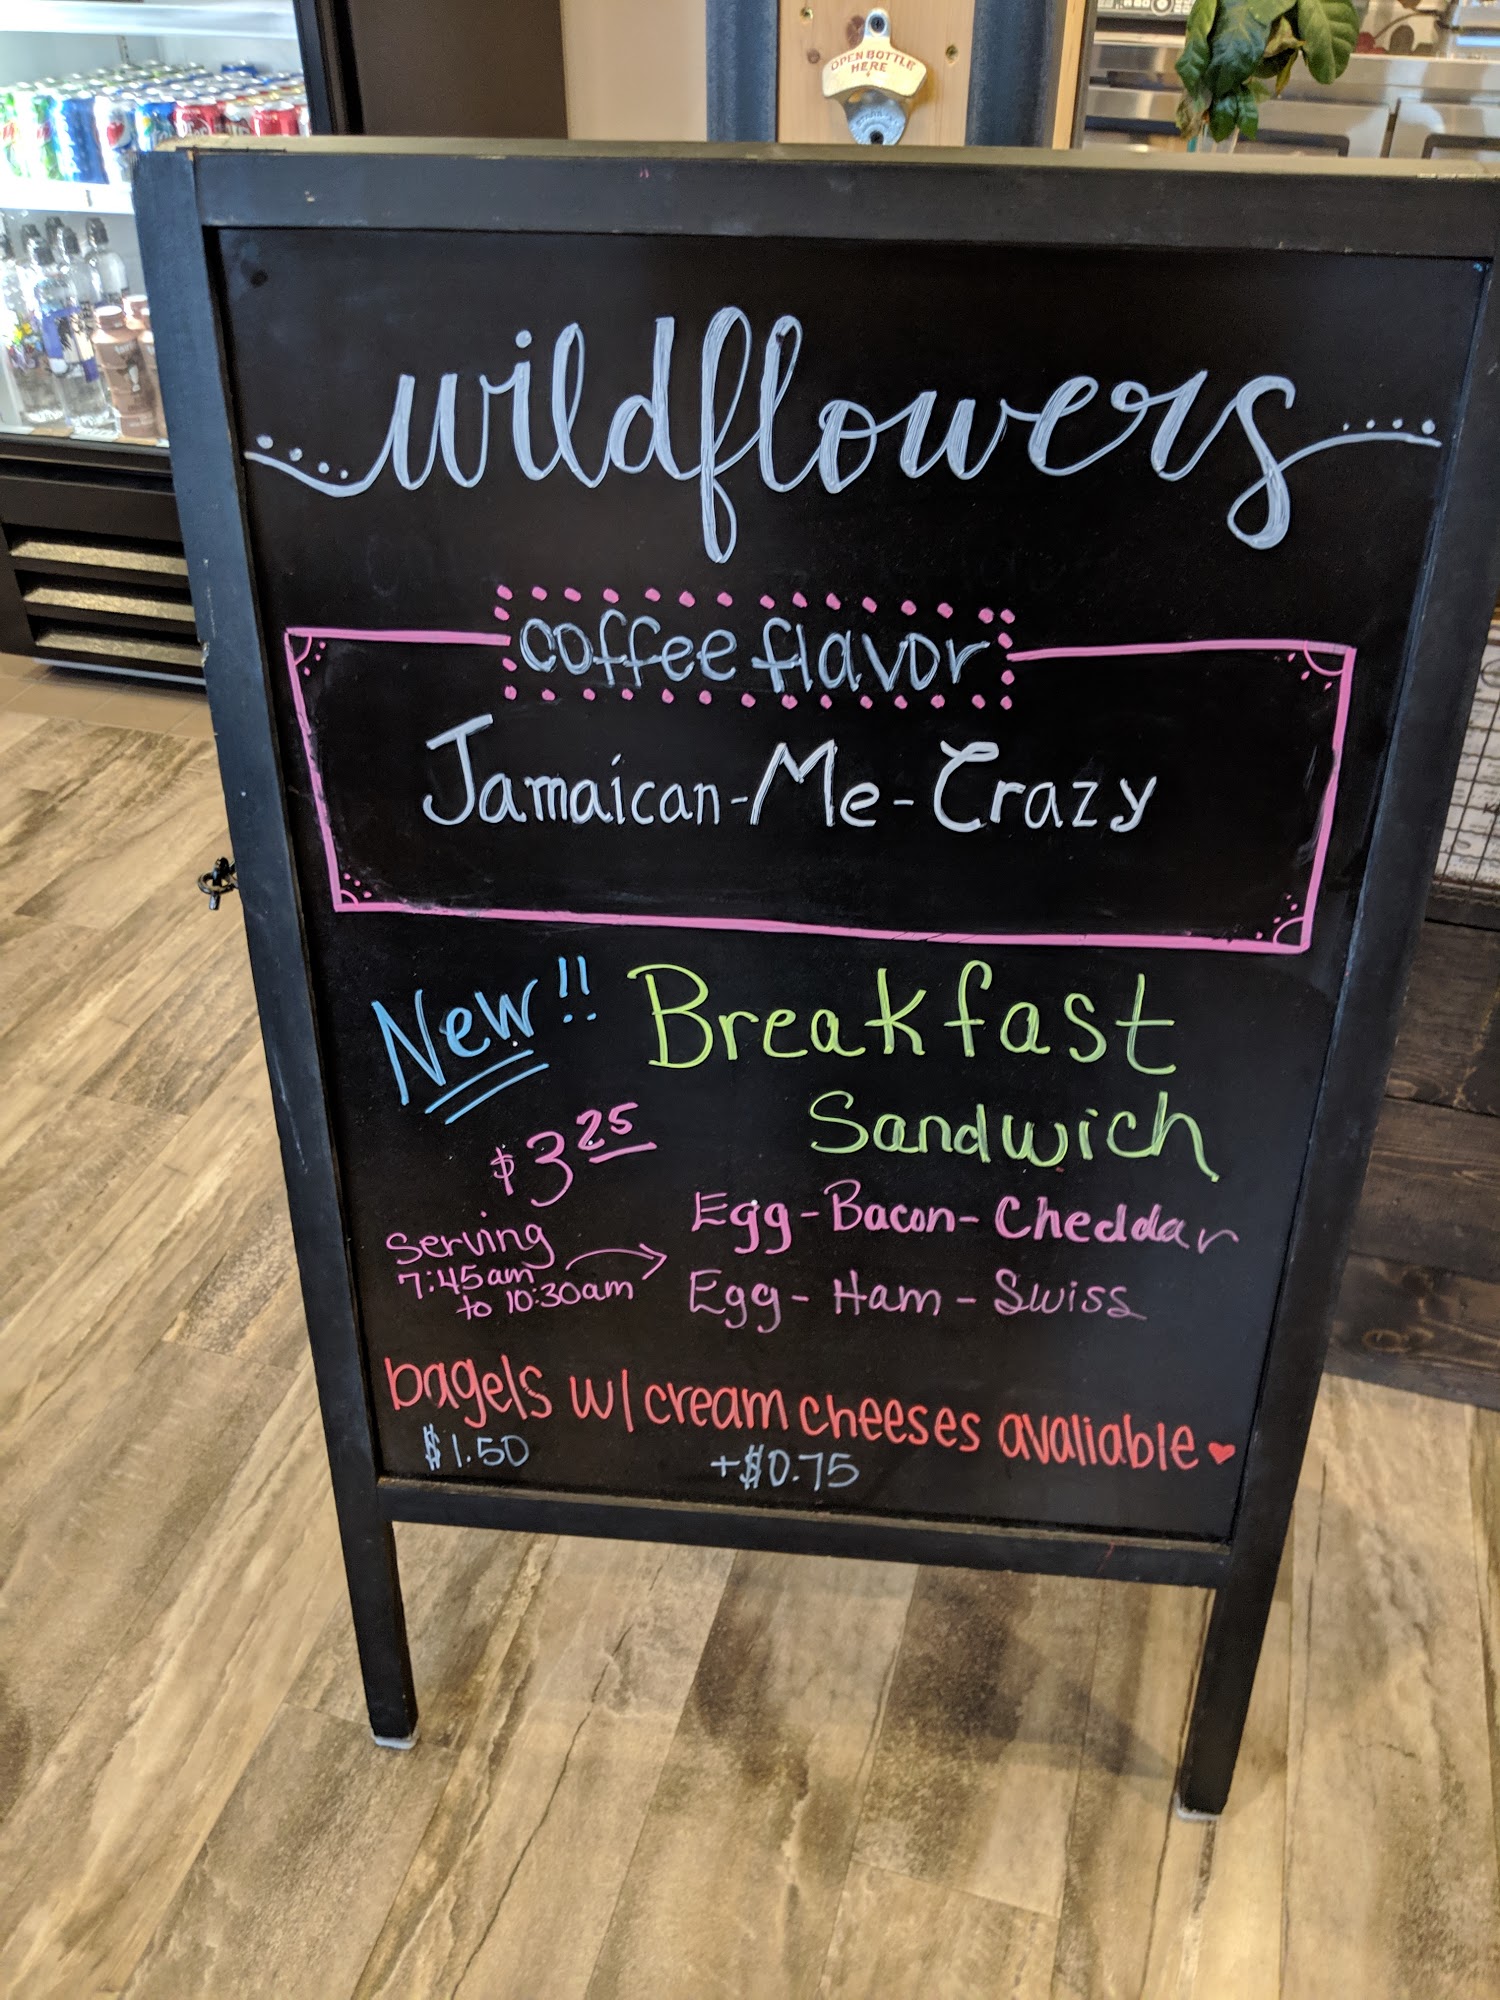 OPEN BOTTLE
HERE
wildflowers
coffee flavor
Jamaican-Me-Crazy
New!! Breakfast
Sandwich
$3.25
Egg-Bacon-Cheddar
Serving
7:45am
to 10:30am
Egg-Ham-Swiss
bagels w/ cream cheeses avaliable
$1.50 +$0.75